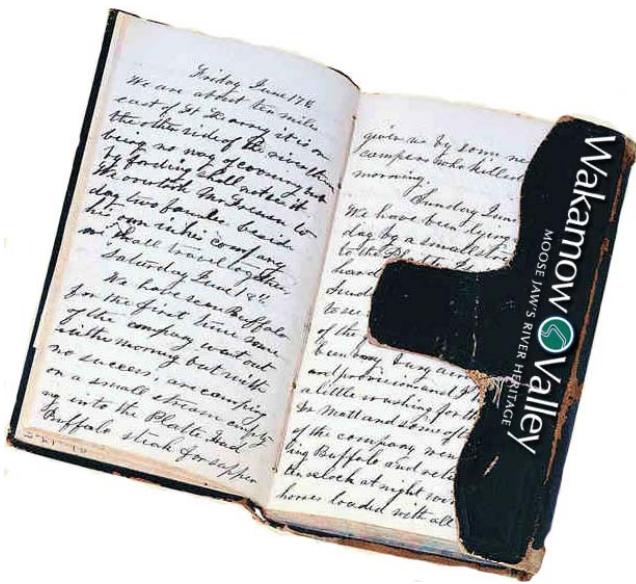 Friday June 17th
We are about ten miles
east of Ft it is on
the other side of the river there
being no way of crossing but
by fording shall not see it
day two families beside
his own in his company
we shall travel together
Saturday June 18th
We have seen Buffalo
for the first time some
of the company went out
in the morning but with
no success, are camping
on a small stream empty-
ng into the Platte Had
Buffalo steak for supper
given us by some ne
campers who killed
morning.
Sunday June
We have been lying
day by a small str
to the Platte
hard
Sund
to se
of the
been busy
and provision and
a little washing for th
Mr Matt and some of th
of the company wen
ing Buffalo and ret
oclock at night wi
horses loaded with all
Wakamow Valley
MOOSE JAW'S RIVER HERITAGE